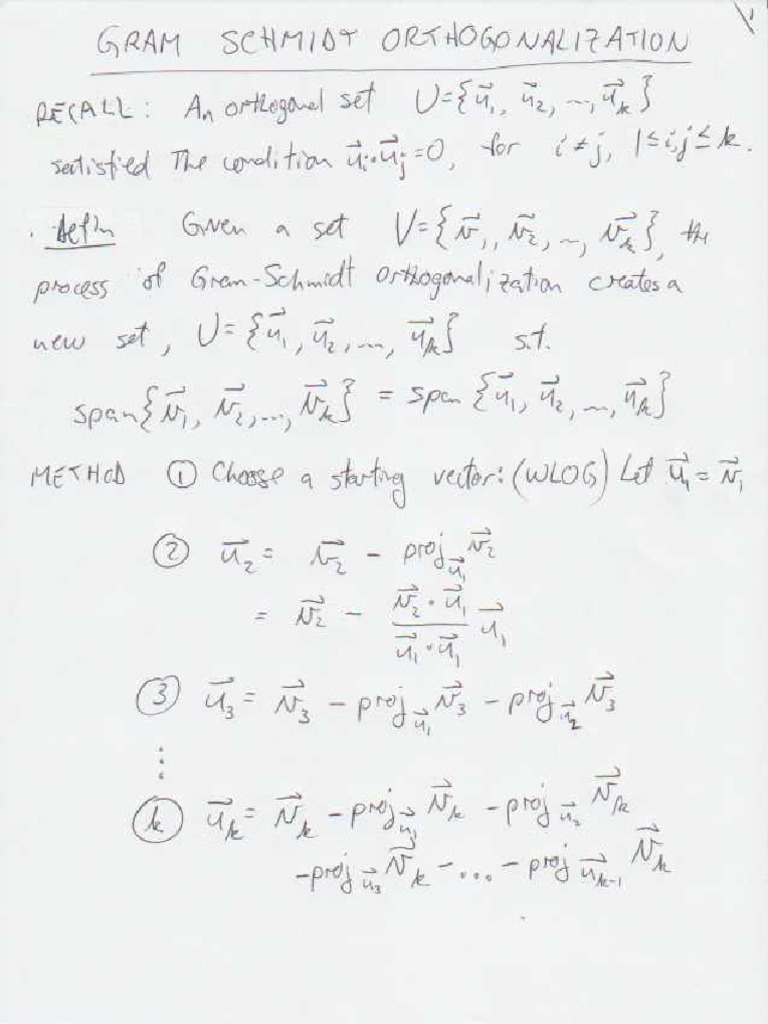 GRAM SCHMIDT ORTHOGONALIZATION
RECALL: An orthogonal set U={u⃗₁, u⃗₂, ..., u⃗ₖ}
satisfied The condition u⃗ᵢ·u⃗ⱼ=0, for i≠j, 1≤i,j≤k.
. defn Given a set V={v⃗₁, v⃗₂, ..., v⃗ₖ}, the
process of Gram-Schmidt orthogonalization creates a
new set, U={u⃗₁, u⃗₂, ..., u⃗ₖ} s.t.
span{v⃗₁, v⃗₂, ..., v⃗ₖ} = span{u⃗₁, u⃗₂, ..., u⃗ₖ}
METHOD ① Choose a starting vector: (WLOG) Let u⃗₁ = v⃗₁
② u⃗₂ = v⃗₂ - proj_u⃗₁ v⃗₂
= v⃗₂ - (v⃗₂·u⃗₁)/(u⃗₁·u⃗₁) u⃗₁
③ u⃗₃ = v⃗₃ - proj_u⃗₁ v⃗₃ - proj_u⃗₂ v⃗₃
⋮
ⓚ u⃗ₖ = v⃗ₖ - proj_u⃗₁ v⃗ₖ - proj_u⃗₂ v⃗ₖ
- proj_u⃗₃ v⃗ₖ - ... - proj_u⃗ₖ₋₁ v⃗ₖ